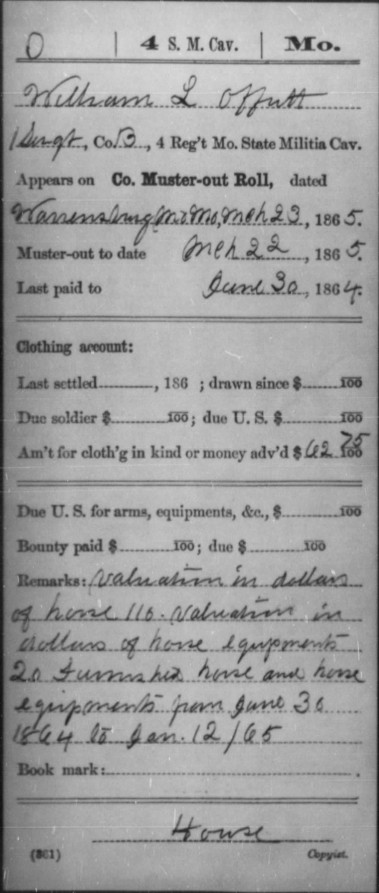 O | 4 S. M. Cav. | Mo.
William L Offutt
1 Sergt, Co. B, 4 Reg't Mo. State Militia Cav.
Appears on Co. Muster-out Roll, dated
Warrensburg Mo, Mch 23, 1865.
Muster-out to date Mch 22, 1865.
Last paid to June 30, 1864.
Clothing account:
Last settled, 186 ; drawn since $ 100
Due soldier $ 100; due U. S. $ 100
Am't for cloth'g in kind or money adv'd $ 62 75/100
Due U. S. for arms, equipments, &c., $ 100
Bounty paid $ 100; due $ 100
Remarks: Valuation in dollars
of horse 110. Valuation in
dollars of horse equipments
20 Furnished horse and horse
equipments from June 30
1864 to Jan. 12/65
Book mark:
House
(861) Copyist.